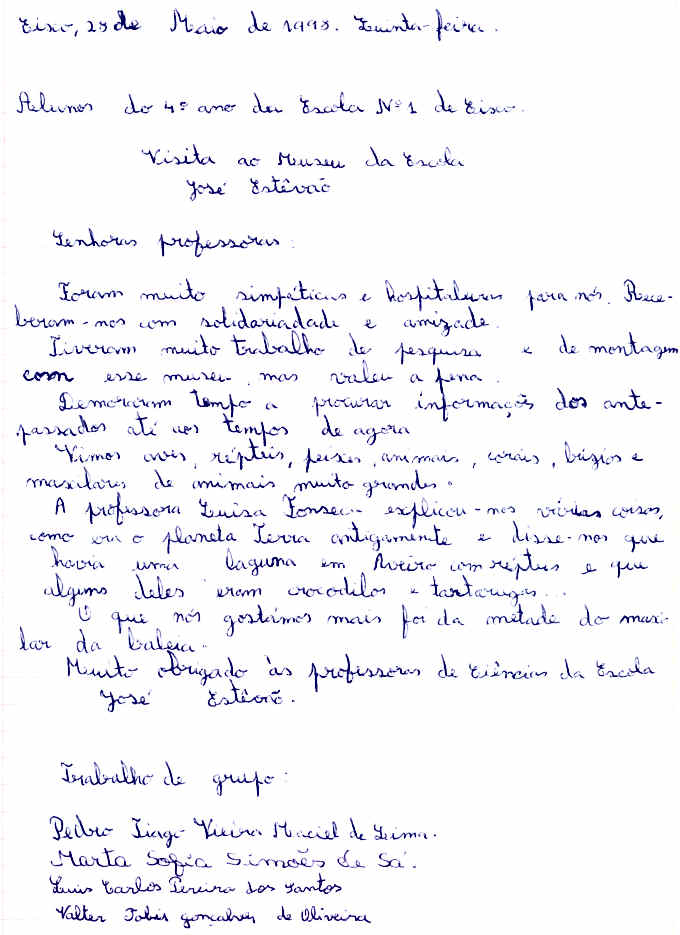 Eixo, 28 de Maio de 1998. Quinta-feira.
Alunos do 4º ano da Escola Nº 1 de Eixo.
Visita ao Museu da Escola
José Estêvão
Senhoras professoras:
Foram muito simpáticas e hospitaleiras para nós. Rece-
beram-nos com solidariadade e amizade.
Tiveram muito trabalho de pesquisa e de montagem
com esse museu, mas valeu a pena.
Demoraram tempo a procurar informações dos ante-
passados até aos tempos de agora
Vimos aves, répteis, peixes, animais, corais, búzios e
maxilares de animais muito grandes.
A professora Luísa Fonseca explicou-nos várias coisas,
como era o planeta Terra antigamente e disse-nos que
havia uma laguna em Aveiro com répteis e que
alguns deles eram crocodilos e tartarugas...
O que nós gostámos mais foi da metade do maxi-
lar da baleia.
Muito obrigado às professoras de Ciências da Escola
José Estêvão.
Trabalho de grupo:
Pedro Tiago Vieira Maciel de Lima.
Marta Sofia Simões de Sá.
Luis Carlos Pereira dos Santos
Valter Tobis gonçalves de Oliveira